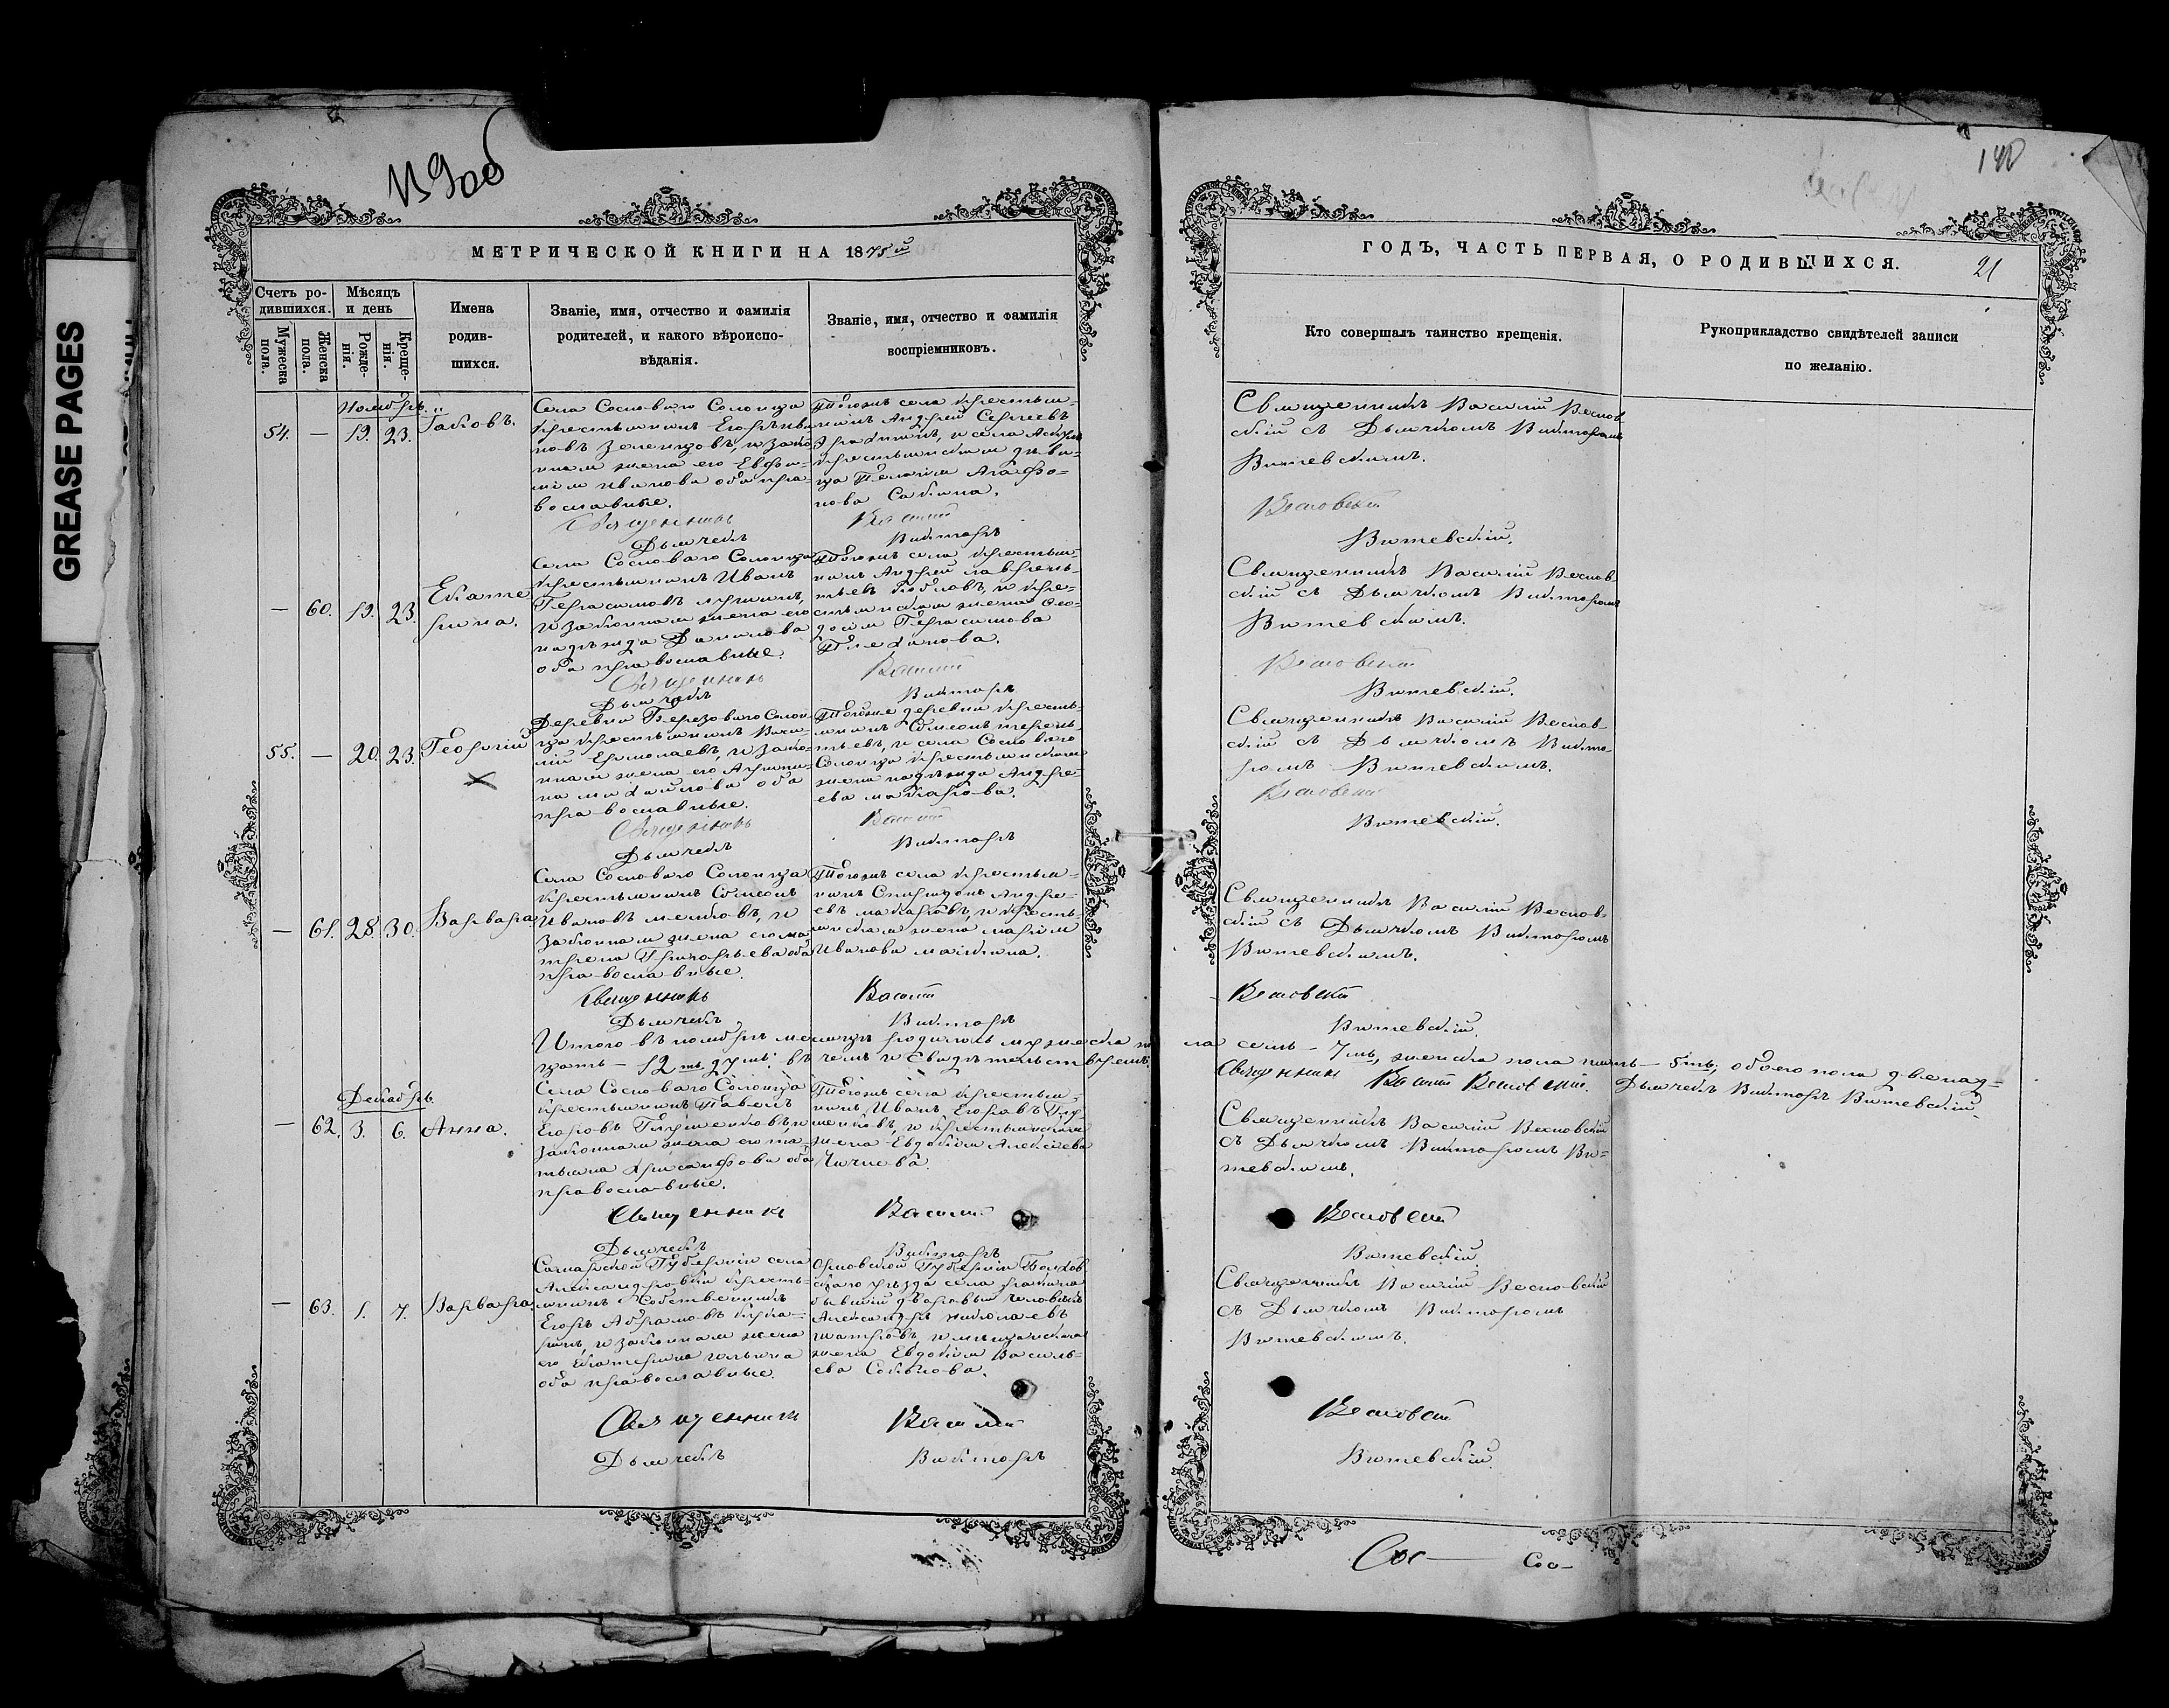 GREASE PAGES
МЕТРИЧЕСКОЙ КНИГИ НА 1875й
Счетъ ро-
дившихся.
Мѣсяцъ
и день
Мужеска
пола.
Женска
пола.
Рожде-
нія.
Креще-
нія.
Имена
родив-
шихся.
Званіе, имя, отчество и фамилія
родителей, и какого вѣроиспо-
вѣданія.
Званіе, имя, отчество и фамилія
воспріемниковъ.
Ноябрь.
54. — 19. 23.
Іаковъ.
Села Сосноваго Солонца
крестьянинъ Егоръ Ива-
новъ Зеленцовъ, и зако
нная жена его Евфи-
мія Иванова оба пра-
вославные.
Тогожъ села крестья-
нинъ Андрей Сергеевъ
и села
крестьянская дѣви-
ца Пелагія Агафо-
нова
Священникъ Василій
Дьячекъ Викторъ
— 60. 19. 23.
Екате
рина.
Села Сосноваго Солонца
крестьянинъ Иванъ
Герасимовъ
и законная жена его
Надежда Данилова
оба православные.
Тогожъ села крестья-
нинъ Андрей Лаврень-
тьевъ и кре-
стьянская жена Ѳео-
досія Герасимова
Священникъ Василій
Дьячекъ Викторъ
55. — 20. 23.
Георгій
Деревни Березоваго Солон-
ца крестьянинъ Васи-
лій Ермолаевъ, и зако-
нная жена его
на Михайлова оба
православные.
Тойже деревни кресть-
янинъ Симеонъ Терень-
тьевъ, и села Сосноваго
Солонца крестьянская
жена Надежда Андре-
ева Макарова.
Священникъ Василій
Дьячекъ Викторъ
— 61. 28. 30.
Варвара.
Села Сосноваго Солонца
крестьянинъ Симеонъ
Ивановъ и
законная жена его Ма-
трена Григорьева оба
православные.
Тогожъ села крестья-
нинъ Спиридонъ Андре-
евъ Макаровъ, и кресть-
янская жена Марія
Иванова
Священникъ Василій
Дьячекъ Викторъ
Итого въ ноябрѣ месяцѣ родилось мужеска по
цать — 12ть душъ: въ чемъ и свидѣтельствуемъ:
Декабрь.
— 62. 3. 6.
Анна.
Села Сосноваго Солонца
крестьянинъ Павелъ
Егоровъ и
законная жена его Та-
тьяна Хрисанфова оба
православные.
Тогожъ села крестья-
нинъ Иванъ Егоровъ
и крестьянская
жена Евдокія Алексѣева
Священникъ Василій
Дьячекъ Викторъ
— 63. 1. 7.
Варвара.
Самарской Губерніи села
Александровки кресть-
янинъ собственникъ
Егоръ Абрамовъ
и законная жена
его Екатерина Ильина
оба православные.
Орловской Губерніи Болхов
скаго уѣзда села
бывшій дворовый человѣкъ
Александръ Николаевъ
и мещанская
жена Евдокія Василь-
ева
Священникъ Василій
Дьячекъ Викторъ
140
ГОДЪ, ЧАСТЬ ПЕРВАЯ, О РОДИВШИХСЯ.
21
Кто совершалъ таинство крещенія.
Рукоприкладство свидѣтелей записи
по желанію.
Священникъ Василій Веснов-
скій съ Дьячкомъ Викторомъ
Витевскимъ.
Весновскій
Витевскій.
Священникъ Василій Веснов-
скій съ Дьячкомъ Викторомъ
Витевскимъ.
Весновскій
Витевскій.
Священникъ Василій Веснов-
скій съ Дьячкомъ Викто-
ромъ Витевскимъ.
Весновскій
Витевскій.
Священникъ Василій Веснов-
скій съ Дьячкомъ Викторомъ
Витевскимъ.
Весновскій
Витевскій.
ла семь — 7мь, женска пола пять — 5ть, обоего пола двенад-
Священникъ Василій Весновскій. Дьячекъ Викторъ Витевскій.
Священникъ Василій Весновскій
съ Дьячкомъ Викторомъ Ви-
тевскимъ.
Весновскій
Витевскій.
Священникъ Василій Весновскій
съ Дьячкомъ Викторомъ
Витевскимъ.
Весновскій
Витевскій.
Сос— Сос—